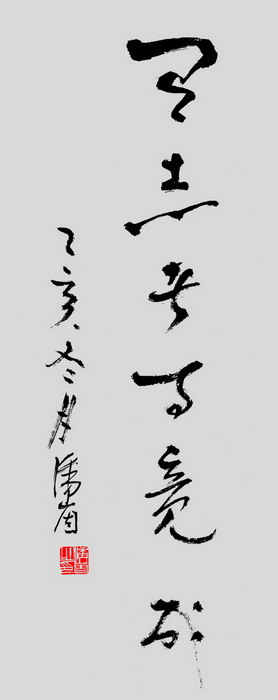 有志者事竟成
乙亥冬月